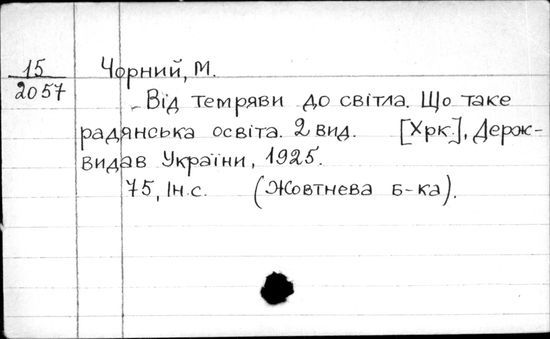 15
2057
Чорний, М.
Від темряви до світла. Що таке
радянська освіта. 2 вид. [Хрк.], Держ-
видав України, 1925.
75, Ін.с. (Жовтнева б-ка).